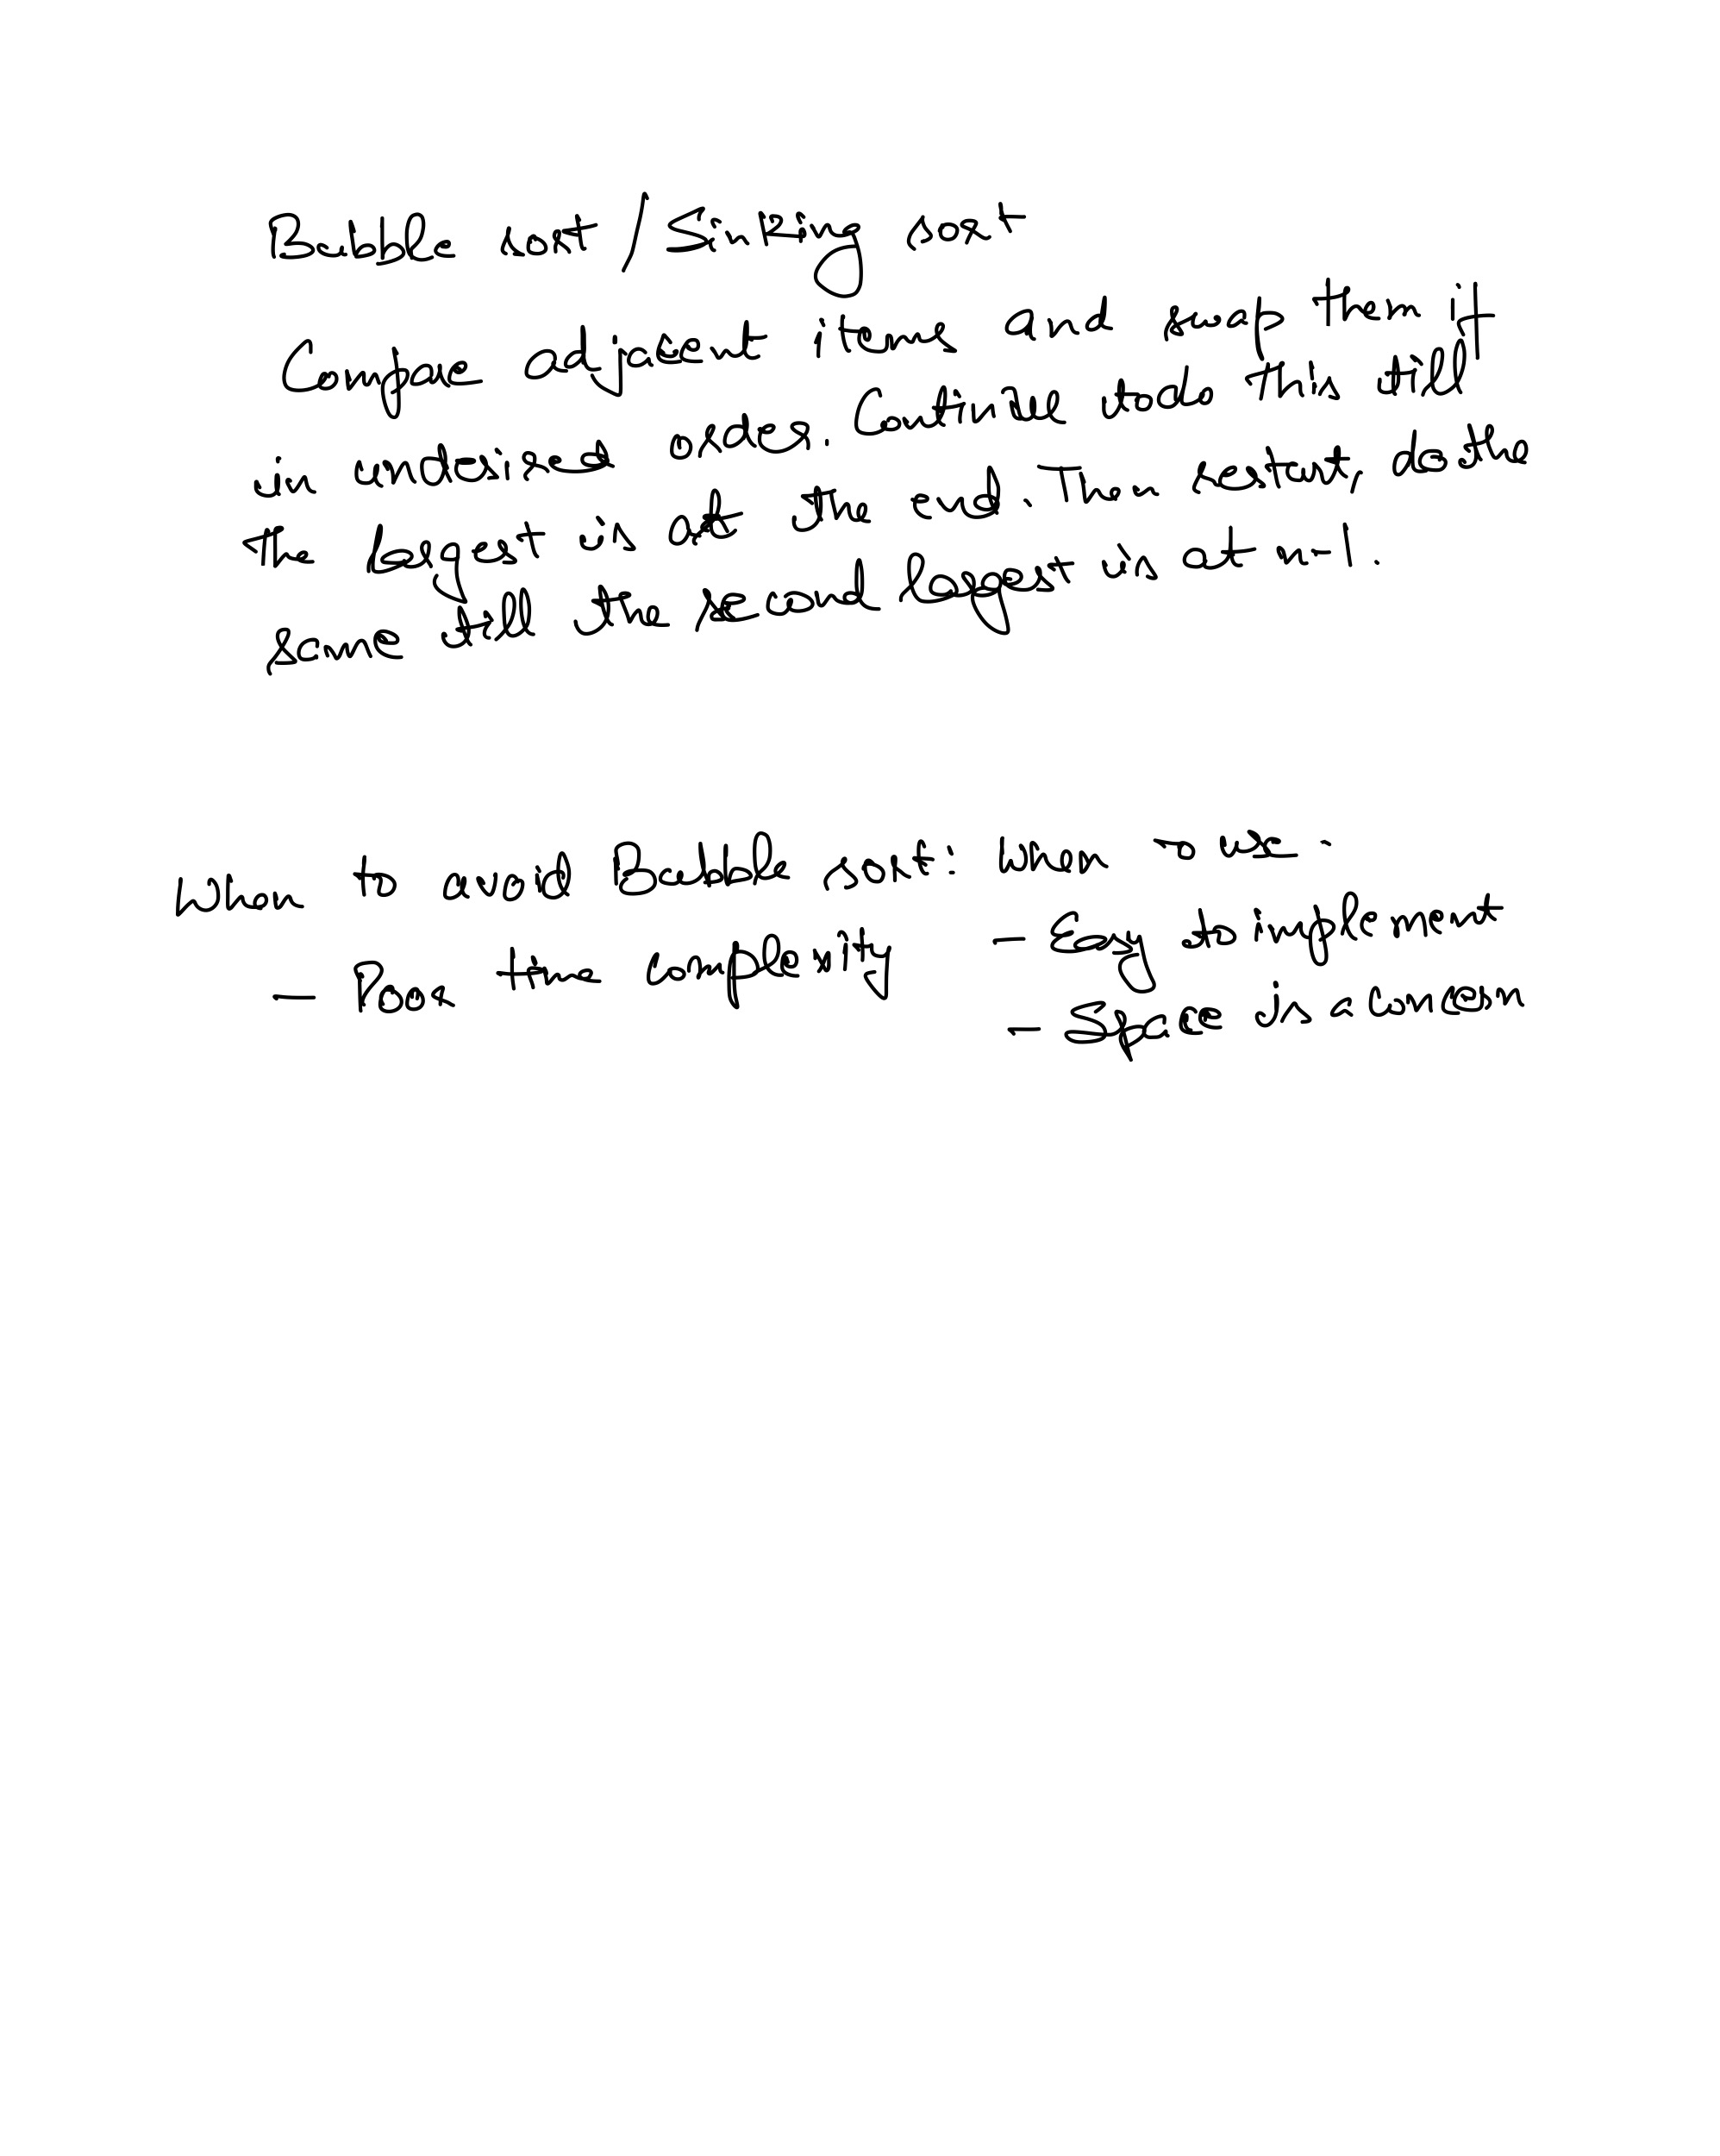 Bubble sort / Sinking sort
Compare adjacent items and swap them if
in undesired order. Continue to do this till
the largest is at the end. Then restart, do the
same till the second largest is at n-1.
When to avoid Bubble sort: When to use -
- Poor time complexity - Easy to implement
- Space is a concern